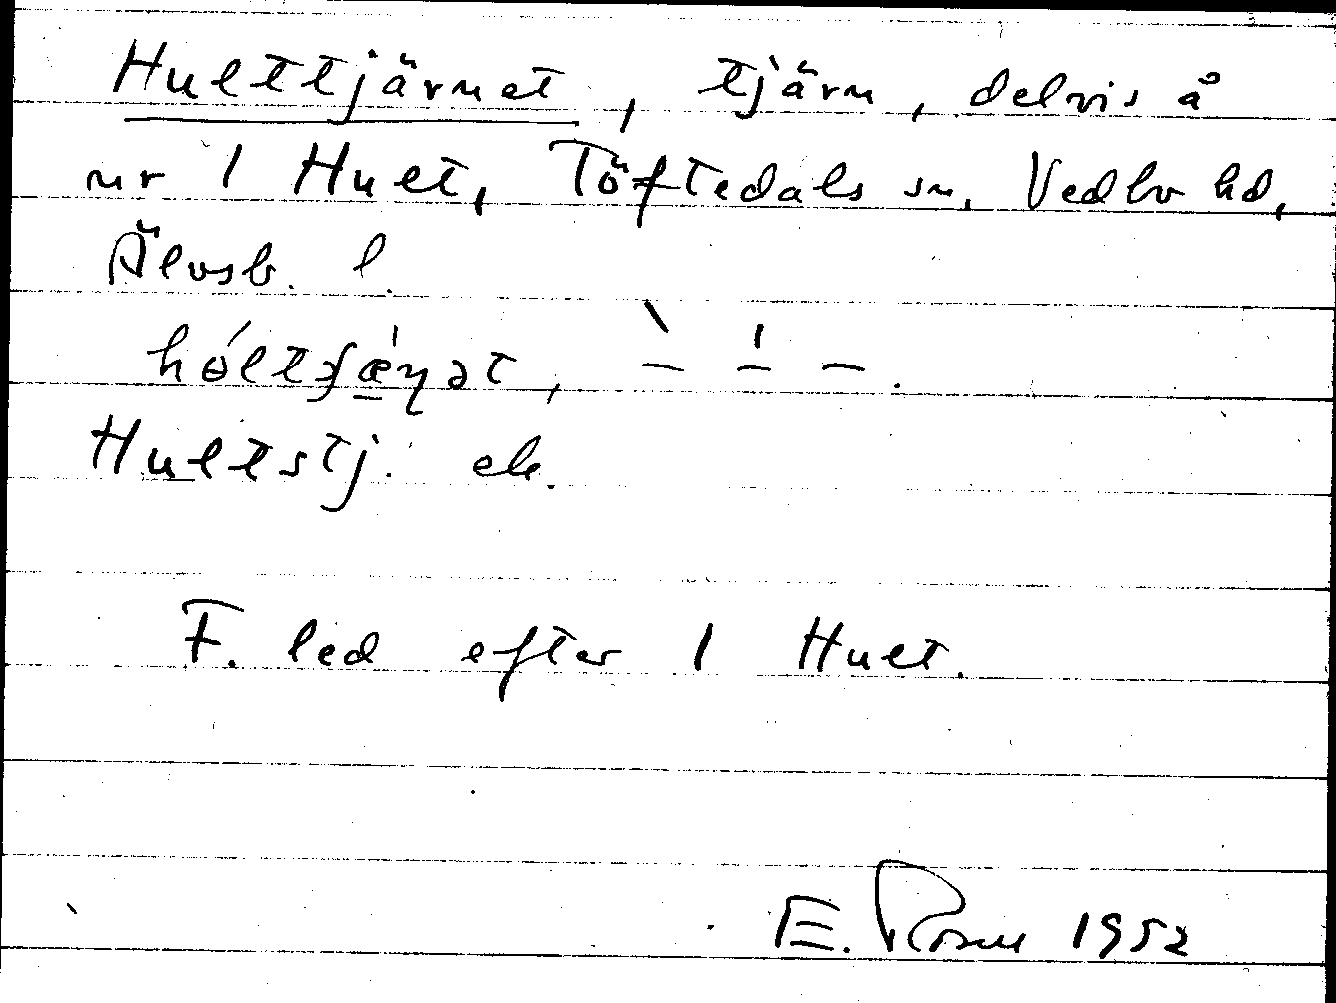 Hulttjärnet, tjärn, delvis å
nr 1 Hult, Töftedals sn, Vedbo hd,
Älvsb. l.
Hultstj. ek.
F. led efter 1 Hult.
E. Rosen 1952